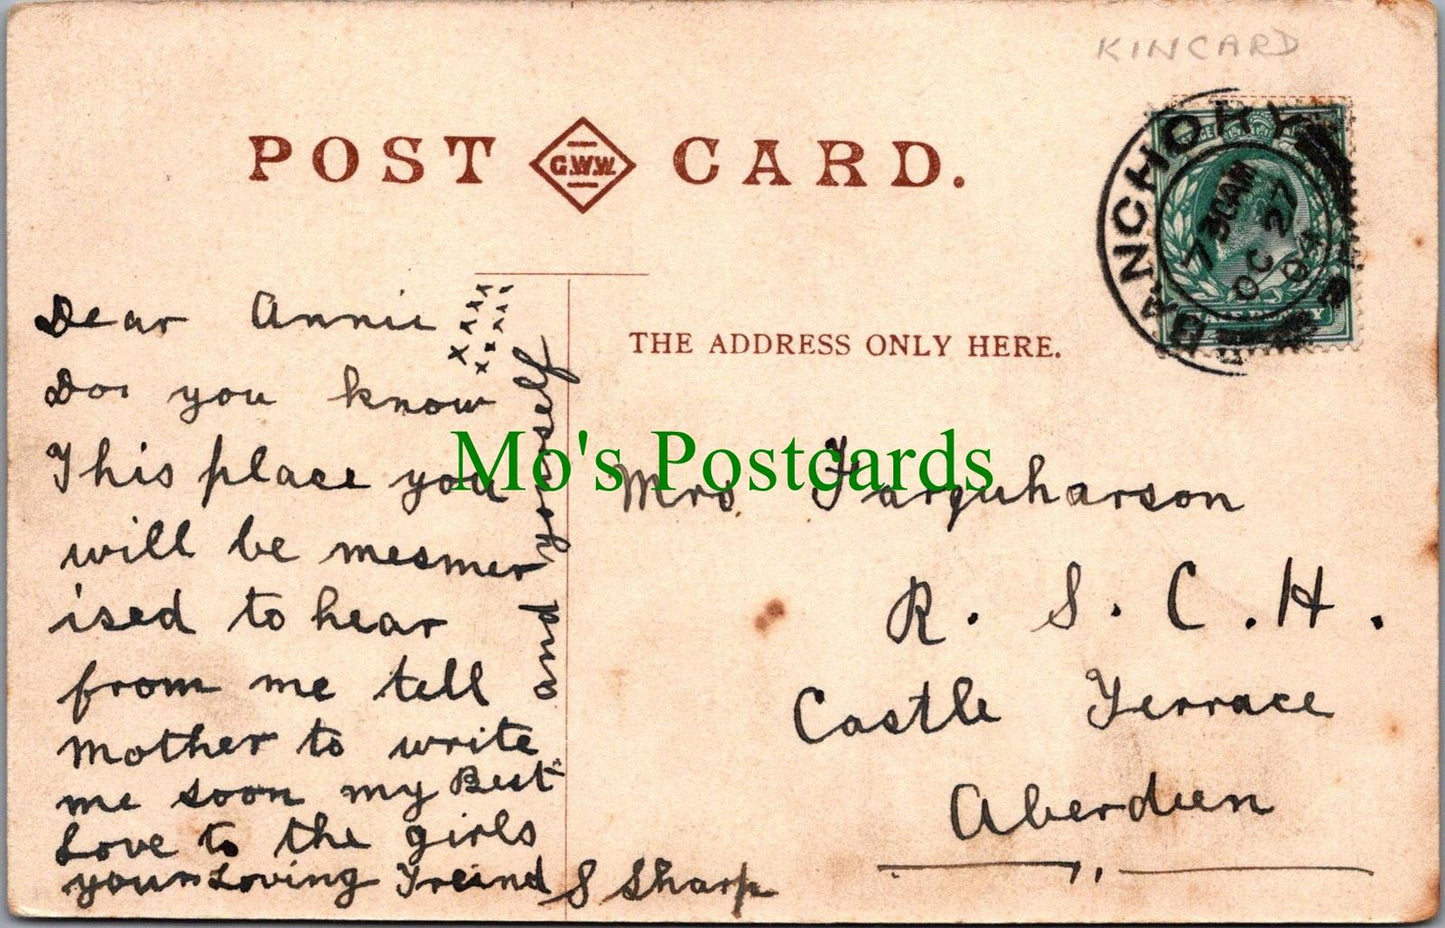 KINCARD
POST G.W.W. CARD.
BANCHORY
7 30AM
OC 27
04
THE ADDRESS ONLY HERE.
Dear Annie
xxxx
xxxxx
Do you know
This place you
will be mesmer
ised to hear
from me tell
Mother to write
me soon my Best
Love to the girls
and yourself
your Loving Freind S Sharp
Mrs Farquharson
R. S. C. H.
Castle Terrace
Aberdeen
Mo's Postcards